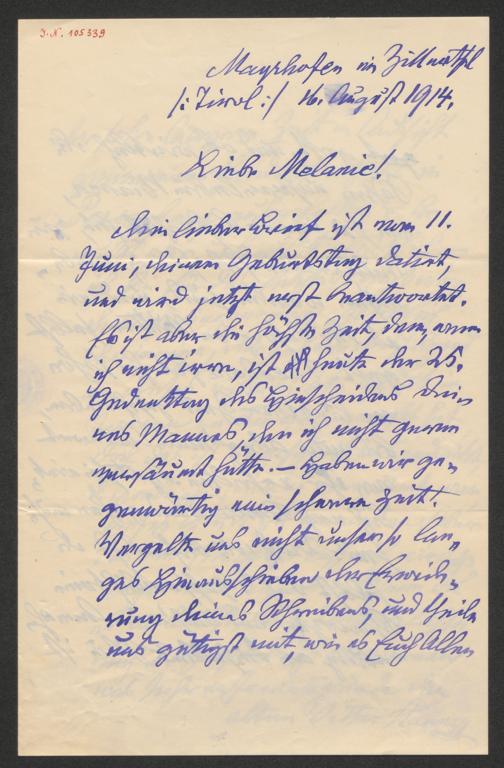 J. N. 105339
Mayrhofen im Zillerthal
/: Tirol :/ 16. August 1914.
Liebe Melanie!
Dein lieber Brief ist vom 11.
Juni, deinem Geburtstag datirt,
und wird jetzt erst beantwortet.
Es ist aber die höchste Zeit, denn, wenn
ich nicht irre, ist heute der 25.
Gedenktag des Hinscheidens dei-
nes Mannes, den ich nicht gerne
versäumt hätte. — Haben wir ge-
genwärtig eine schwere Zeit!
Vergelte uns nicht unser so lan-
ges Hinausschieben der Erwide-
rung deines Schreibens, und theile
uns gütigst mit, wie es Euch Allen